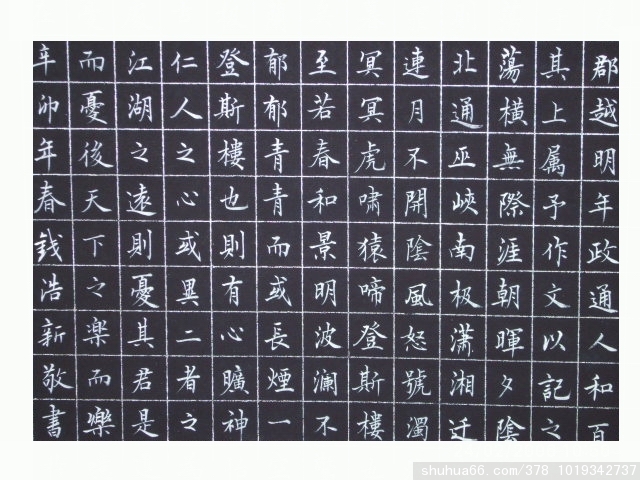 郡越明年政通人和百
其上属予作文以記之
蕩橫無際涯朝暉夕陰
北通巫峽南极瀟湘迁
連月不開陰風怒號濁
冥冥虎啸猿啼登斯樓
至若春和景明波澜不
郁郁青青而或長煙一
登斯樓也則有心曠神
仁人之心或異二者之
江湖之遠則憂其君是
而憂後天下之楽而樂
辛卯年春銭浩新敬書
shuhua66.com/378 1019342737